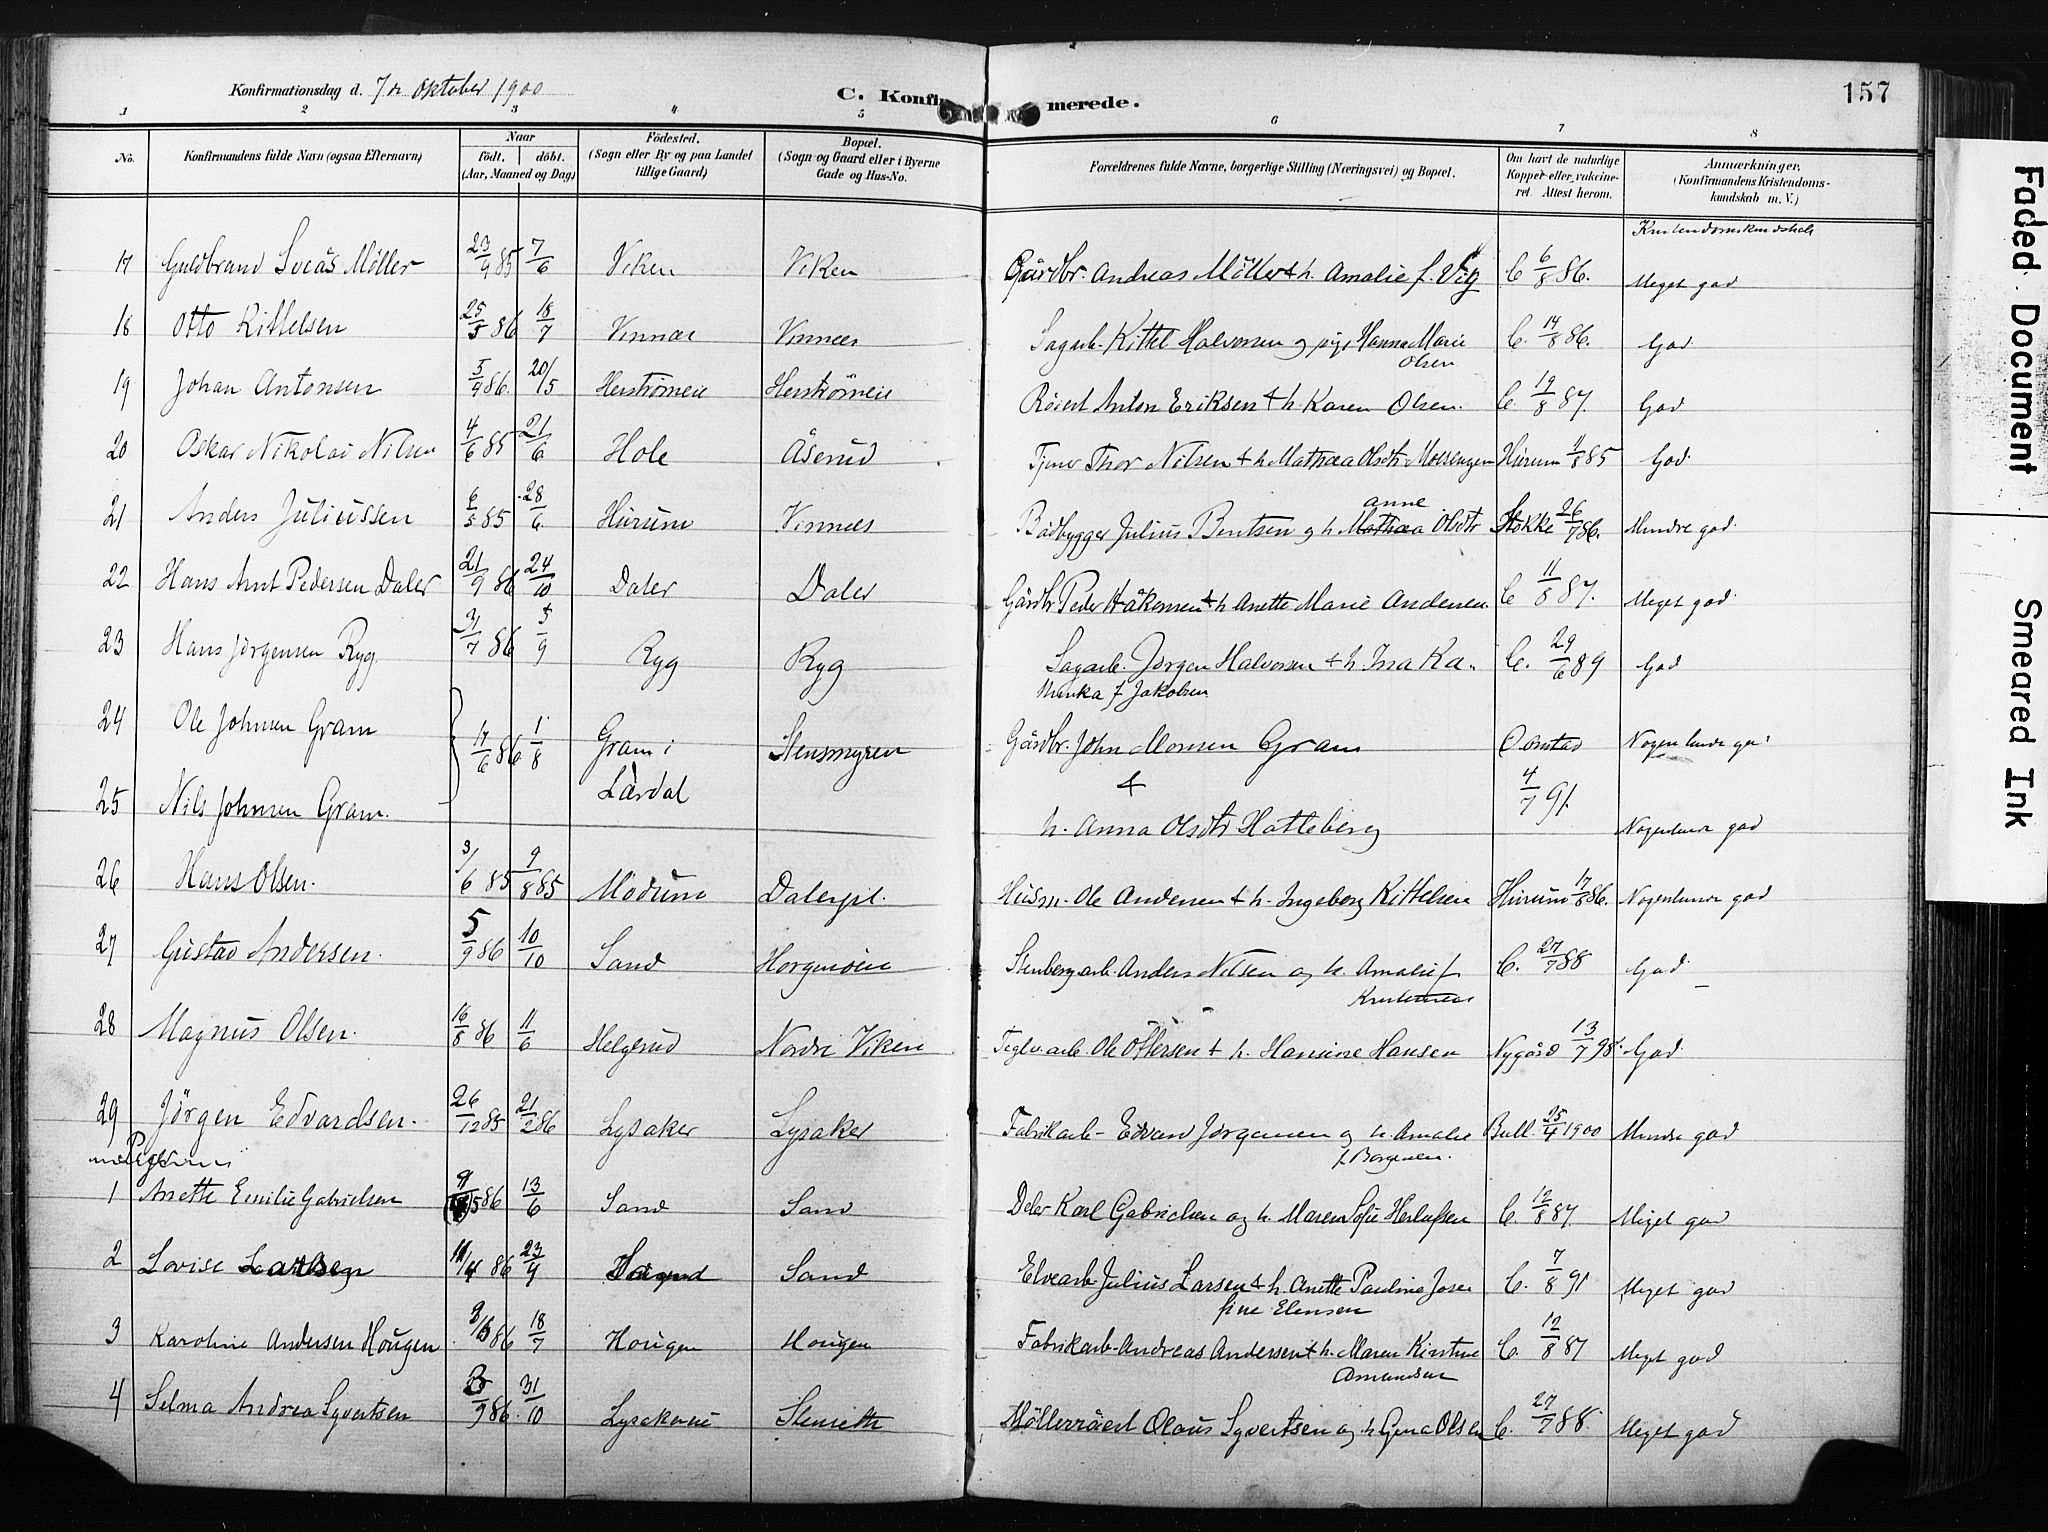 Konfirmationsdag d. 7de Oktober 1900
C. Konfirmerede.
157
1 2 3 4 5 6 7 8
No. Konfirmandens fulde Navn (ogsaa Efternavn) Naar födt. döbt. (Aar, Maaned og Dag) Födested. (Sogn eller By og paa Landet tillige Gaard) Bopæl. (Sogn og Gaard eller i Byerne Gade og Hus-No. Forældrenes fulde Navne, borgerlige Stilling (Næringsvei) og Bopæl. Om havt de naturlige Kopper eller vaccineret. Attest herom. Anmærkninger, (Konfirmandens Kristendomskundskab m. V.)
Kristendomskundskab
17 Guldbrand Sveås Möller 23/4 85 7/6 Viken Viken Gårdbr. Andreas Möller & h. Amalie f. Vig C 6/8 86. Meget god
18 Otto Kittelsen 25/5 86 18/7 Vinnæs Vinnæs Sagarb. Kittel Halvorsen og pige Hanna Marie Olsen C. 14/8 86. God
19 Johan Antonsen 5/9 86. 20/5 Herströmeie Herströmeie Anton Eriksen & h. Karen Olsen. C. 19/8 87. God
20 Oskar Nikolai Nilsen 4/6 85 21/6 Hole Åserud Tjener Thor Nilsen & h Mathea Olsdtr Hurum 1/8 85 God
21 Anders Juliussen 6/5 85 28/6 Hurum Vinnæs Bådbygger Julius Bentsen og h. anne Olsdtr Stokke 26/7 86. Mindre god
22 Hans Arnt Pedersen Daler 21/9 86 24/10 Daler Daler Gårdbr Peder Håkonsen & h Anette Marie Andersen C 11/8 87. Meget god
23 Hans Jörgensen Ryg 31/7 86 5/9 Ryg Ryg Sagarb. Jörgen Halvorsen & h Ina Ka- C. 29/6 89 God
f Jakobsen
24 Ole Johnsen Gram 17/6 86 1/8 Gram i Stensmyren Gårdbr. John Monsen Gram Nogenlunde god
Lærdal & 4/7 91.
25 Nils Johnsen Gram. h. Anna Olsdtr Hatleberg Nogenlunde god
26 Hans Olsen. 3/6 85 9/8 85 Modum Dalerpl. Husm. Ole Andersen & h. Ingeborg Kittelsen Hurum 17/8 86. Nogenlunde god
27 Gustav Andersen. 5/9 86 10/10 Sand Horgenöen Stenbergarb. Anders Nilsen og h. Amalie f C. 27/7 88 God
28 Magnus Olsen. 16/8 86 11/6 Helgerud Nordre Viken Teglv.arb. Ole Ottersen & h. Hansine Hansen Nygård 13/7 98. God
29 Jörgen Edvardsen. 26/12 85 21/2 86 Lysaker Lysaker Fabrikarb. Edvard Jörgensen og h. Amalie Bull. 25/4 1900 Mindre god
Piger
1 Anette Emilie Gabrielsen 5 86 13/6 Sand Sand Karl Gabrielsen og h. Maren Sofie Herlufsen C. 12/8 87. Meget god
2 Lovise Larsen 11/4 86 23/4 Sand Elvearb Julius Larsen & h. Anette Pauline Jose C. 7/8 91 Meget god
fine Elensen
3 Karoline Andersen Hougen 86 18/7 Hougen Hougen Fabrikarb. Andreas Andersen & h. Maren Kirstine C. 12/8 87 Meget god
Amundsen
4 Selma Andrea Syvertsen 3/9 86. 31/10 Lysakereie Stensæth Olaus Syvertsen og h Gina Olsen C. 27/7 88. Meget god
Faded Document
Smeared Ink